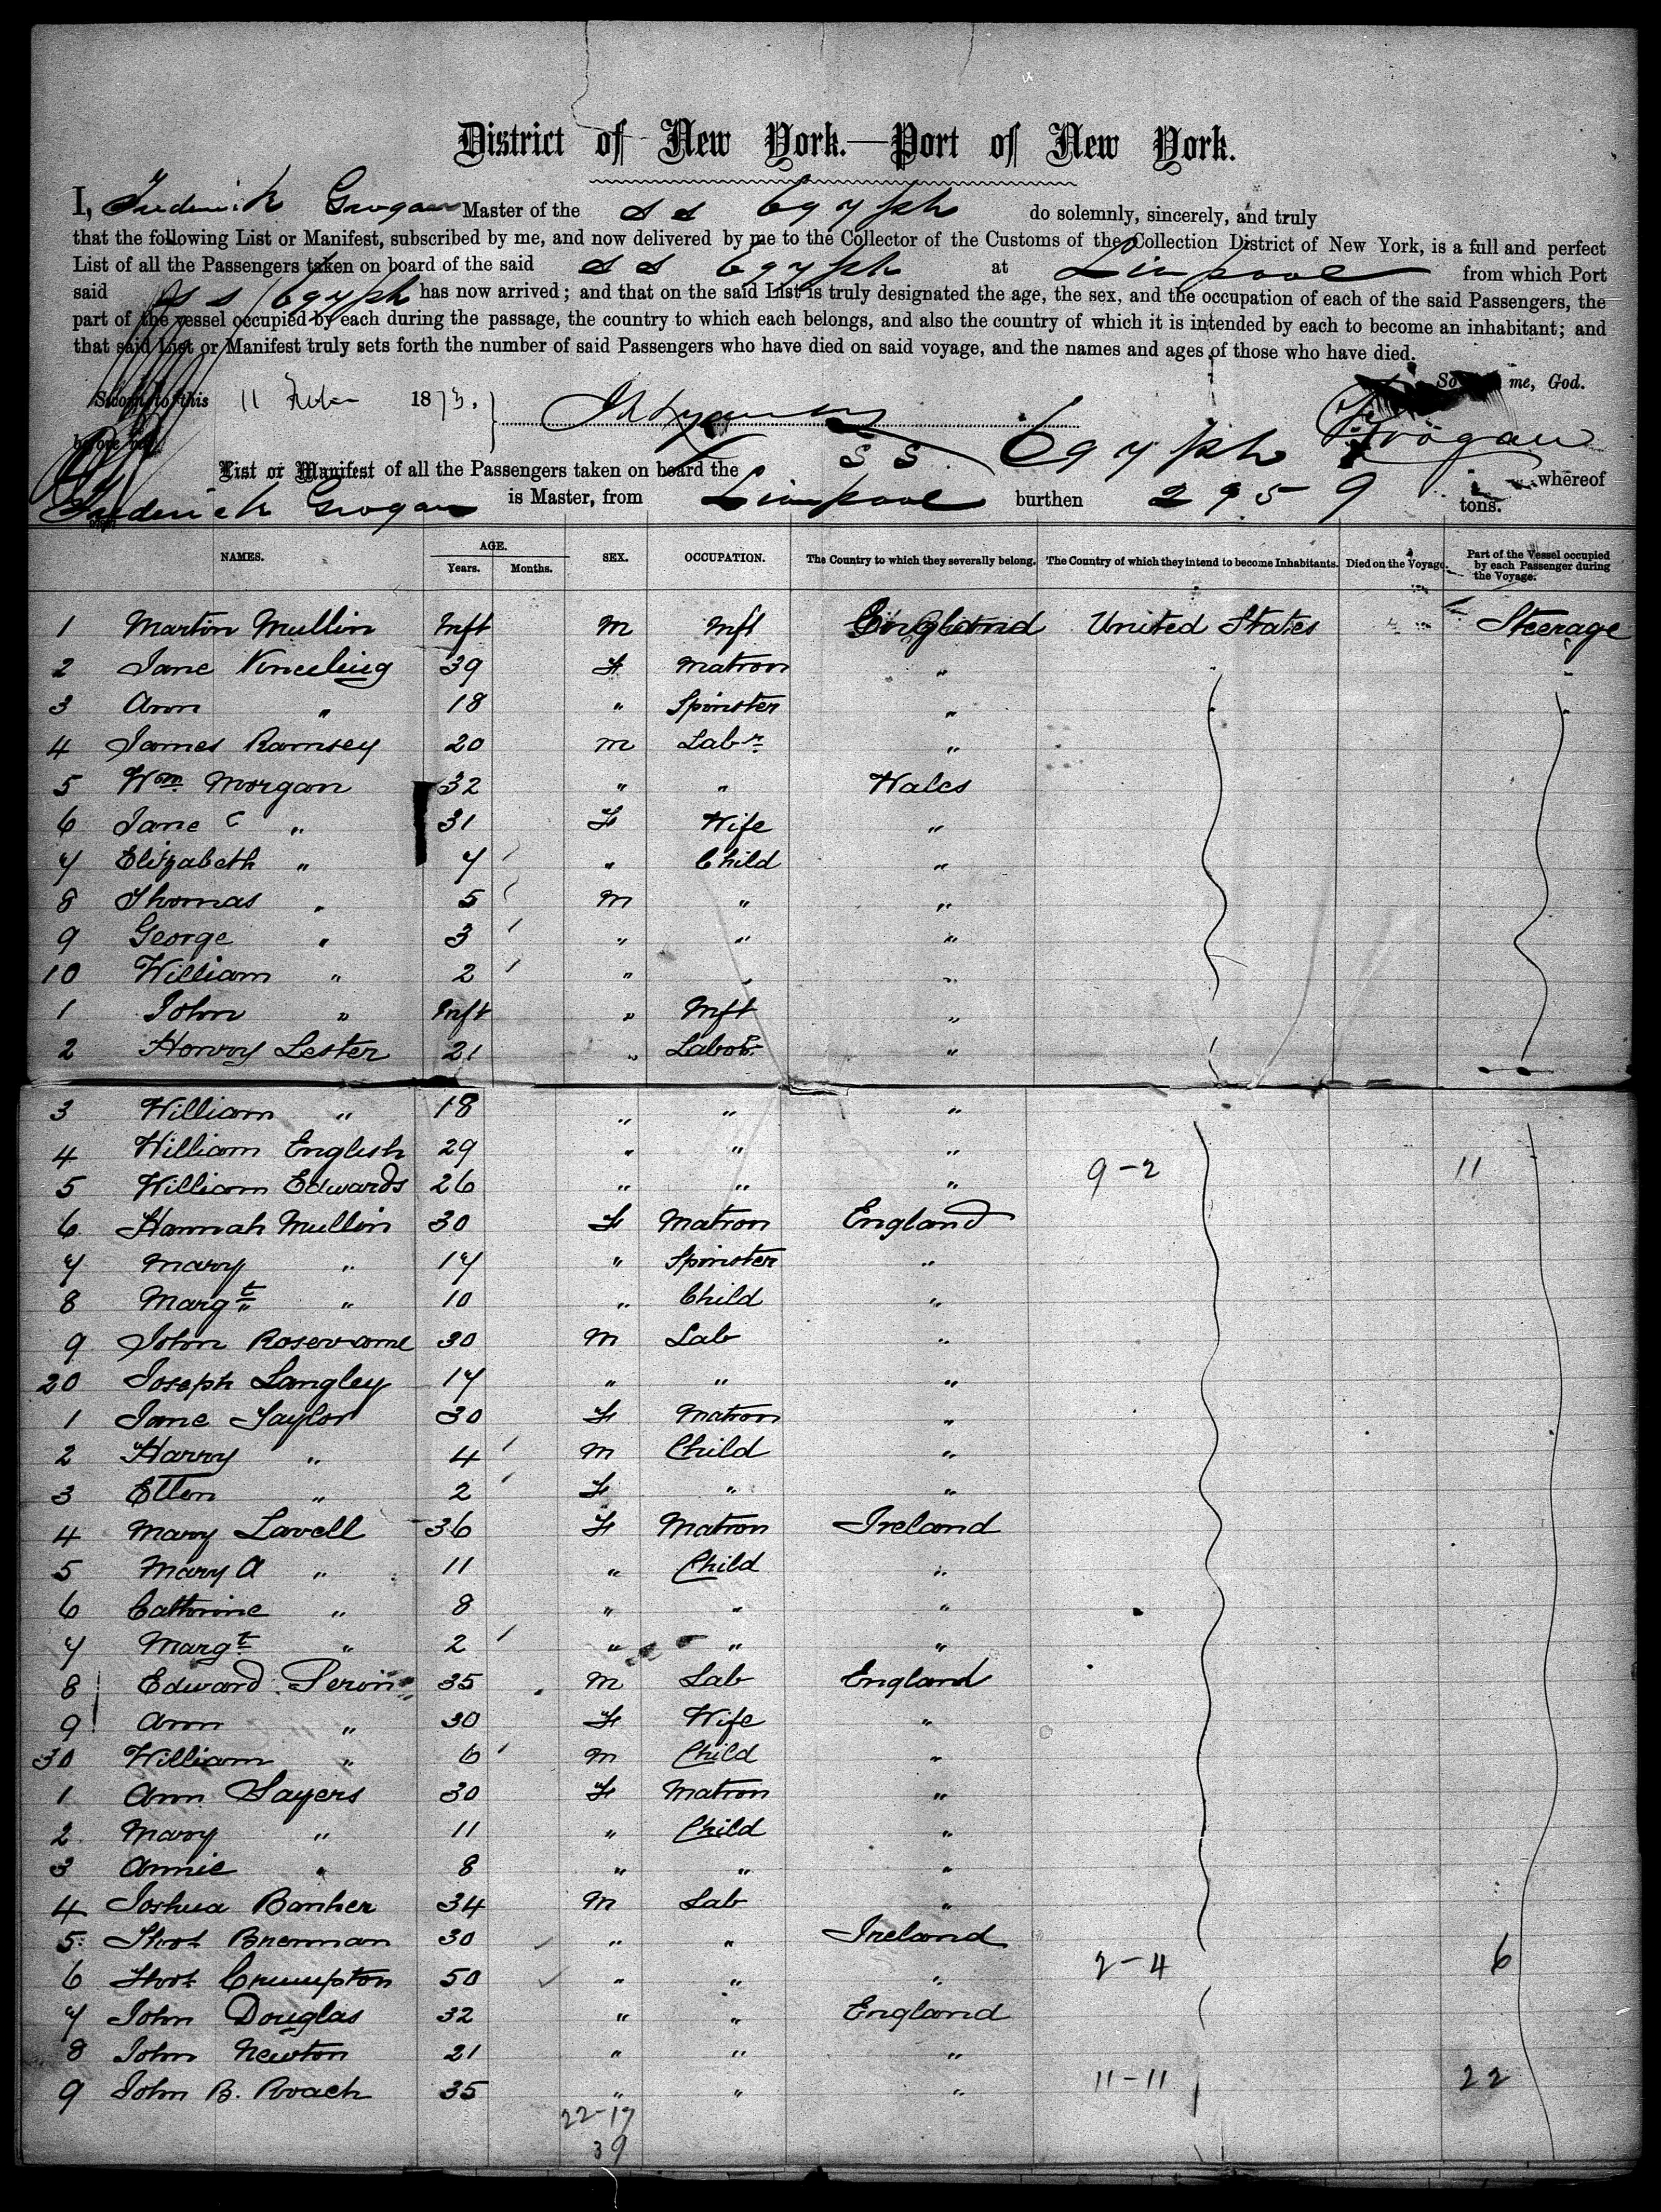 District of New York.—Port of New York.
I, Frederick Grogan Master of the S S Egypt do solemnly, sincerely, and truly
that the following List or Manifest, subscribed by me, and now delivered by me to the Collector of the Customs of the Collection District of New York, is a full and perfect
List of all the Passengers taken on board of the said S S Egypt at Liverpool from which Port
said S S Egypt has now arrived; and that on the said List is truly designated the age, the sex, and the occupation of each of the said Passengers, the
part of the vessel occupied by each during the passage, the country to which each belongs, and also the country of which it is intended by each to become an inhabitant; and
that said List or Manifest truly sets forth the number of said Passengers who have died on said voyage, and the names and ages of those who have died.
So me, God.
Sworn to this 11 1873.
before me Grogan
List or Manifest of all the Passengers taken on board the S S. Egypt whereof
Frederick Grogan is Master, from Liverpool burthen 2959 tons.
NAMES. AGE. SEX. OCCUPATION. The Country to which they severally belong. The Country of which they intend to become Inhabitants. Died on the Voyage. Part of the Vessel occupied by each Passenger during the Voyage.
Years. Months.
1 Martin Mullin Inft M Inft England United States Steerage
2 Jane 39 F Matron "
3 Ann " 18 " Spinster "
4 James Ramsey 20 M Labr "
5 Wm Morgan 32 " " Wales
6 Jane C " 31 F Wife "
7 Elizabeth " 7 " Child "
8 Thomas " 5 M " "
9 George " 3 " " "
10 William " 2 " " "
1 John " Inft " Inft "
2 Henry Lester 21 " Labor. "
3 William " 18 " " "
4 William English 29 " " "
5 William Edwards 26 " " " 9-2 11
6 Hannah Mullin 30 F Matron England
7 Mary " 17 " Spinster "
8 Margt " 10 " Child "
9 John 30 M Lab "
20 Joseph Langley 17 " " "
1 Jane Taylor 30 F Matron "
2 Harry " 4 M Child "
3 Ellen " 2 F " "
4 Mary Lavell 36 F Matron Ireland
5 Mary A " 11 " Child "
6 Catherine " 8 " " "
7 Margt " 2 " " "
8 Edward Peron 35 M Lab England
9 Ann " 30 F Wife "
30 William " 6 M Child "
1 Ann Sayers 30 F Matron "
2 Mary " 11 " Child "
3 Annie " 8 " " "
4 Joshua Banher 34 M Lab "
5 Thos Brennan 30 " " Ireland
6 Thos Crumpton 50 " " " 2-4 6
7 John Douglas 32 " " England
8 John Newton 21 " " "
9 John B. Roach 35 " " " 11-11 22
22-17
39